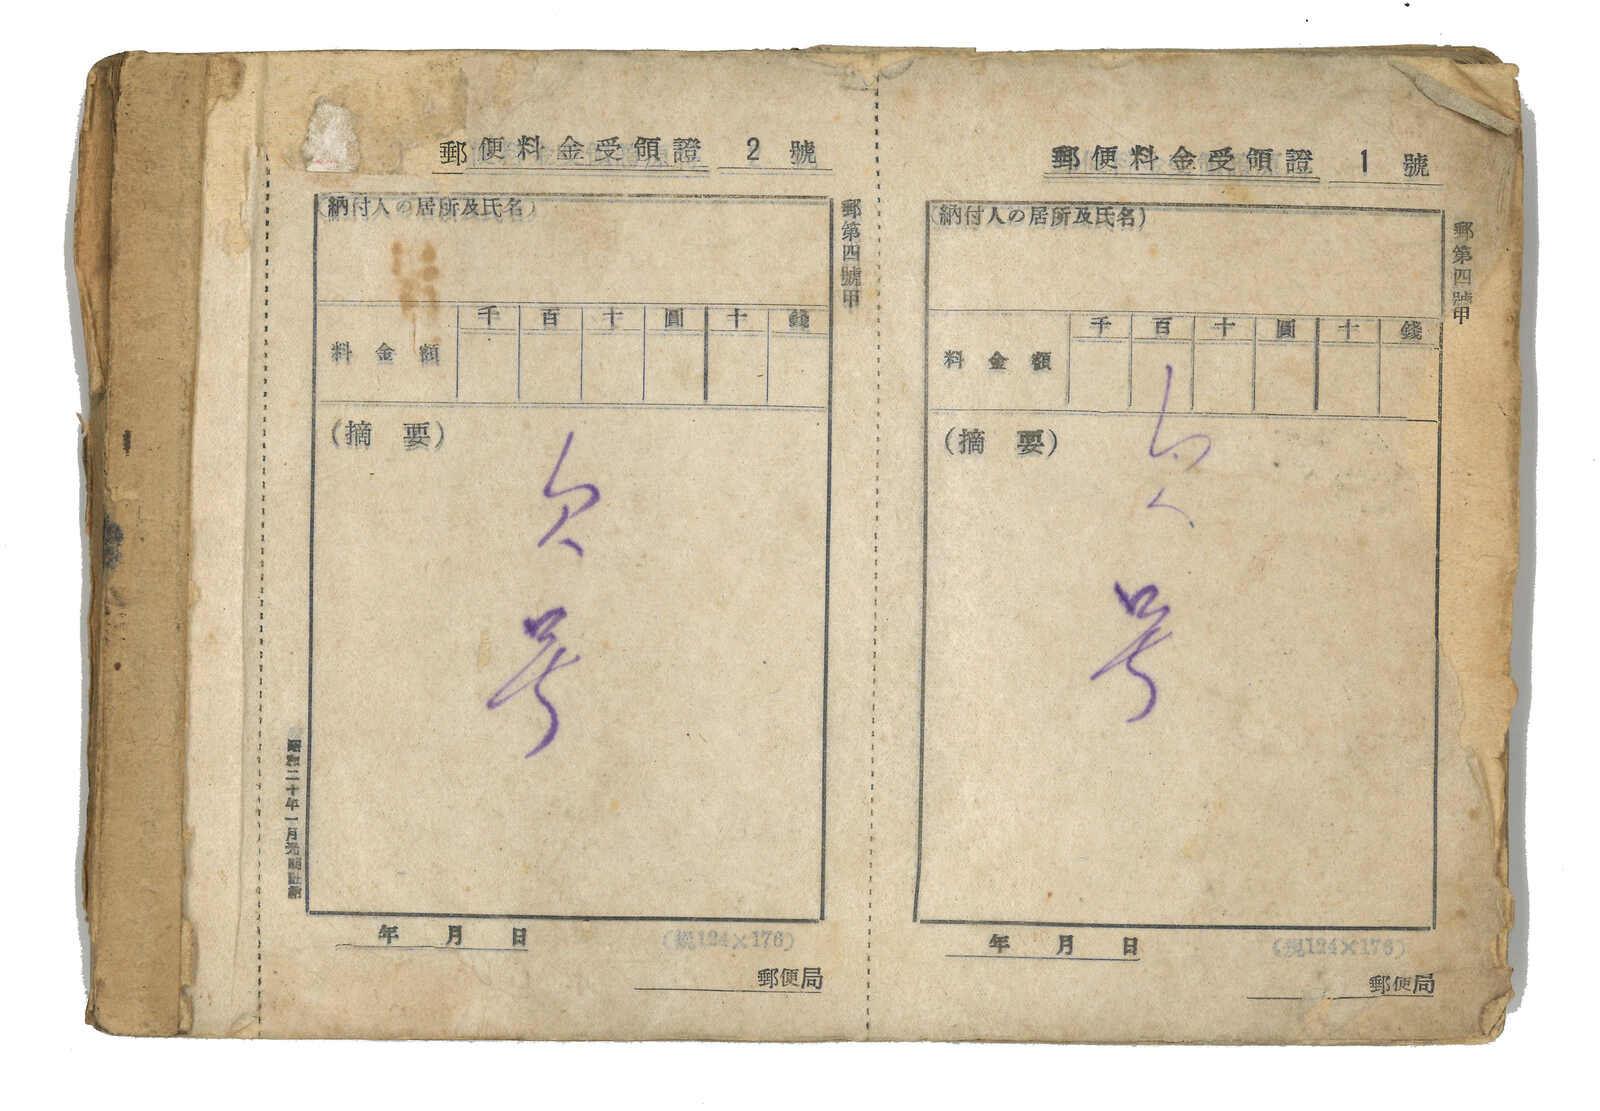 郵便料金受領證 1 號
郵第四號甲
(納付人の居所及氏名)
千 百 十 圓 十 錢
料金額
(摘要)
欠
号
年 月 日
(規124×176)
郵便局
郵便料金受領證 2 號
郵第四號甲
(納付人の居所及氏名)
千 百 十 圓 十 錢
料金額
(摘要)
欠
号
昭和二十年一月
年 月 日
(規124×176)
郵便局